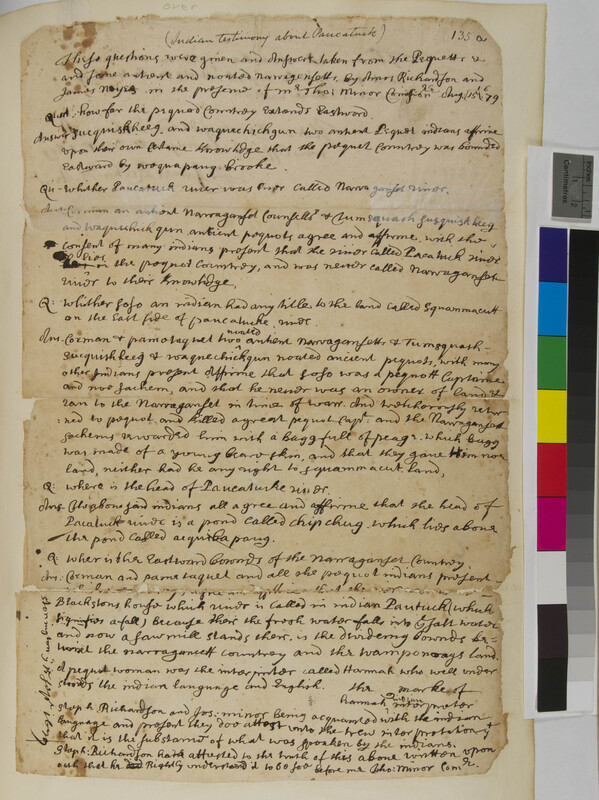 over
(Indian testimony about Paucatuck)
135 a
These questions were given and Answers taken from the Pequetts &
and some antient and noated Narragansetts, by Amos Richardson and
James Noyes in the presence of mr Tho: Minor Aug: 15: 79
Quest: how far the pequod Countrey Extends Eastward.
Answer Sucquishkeeg and waquechichgun two antient Pequet indians affirme
upon their own Certaine Knowledge that the pequet Countrey was bounded
Eastward by wequapaug Brooke.
Qu- Whither Paucatuck river was Ever called Narraganset river.
Ans: Corman an antient Narraganset Counsellr & Tumsquash Susquishkeeg
and waquichickgun antient pequots agree and affirme, with the
Consent of many indians present that the river called Pacatuck river
lies in the pequot Countrey, and was never called Narraganset
river to their Knowledge,
Q: Whither Soso an indian had any title to the land called Squammacutt
on the East side of paucatucke river.
noated
Ans- Corman & pamataquet two antient Narragansetts & Tumsquash-
Sucquishkeeg & waquechickgun noated ancient pequets, with many
other Indians present Affirme that Soso was a pequott Captaine
and noe sachem, and that he never was an owner of land &
ran to the Narraganset in time of warr. And Trecherously retur
:ned to pequot and killed a great pequot Capt: and the Narraganset
sachems rewarded him with a bagg full of peag: which bagg
was made of a young beare skin, and that they gave him noe
land, neither had he any right to Squammacut land,
Q: where is the head of Paucatucke river.
Ans: indians all agree and affirme that the head of
Pacatuck river is a pond called chipchug. which lies above
the pond called
Q: Wher is the Eastward bounds of the Narraganset Countrey.
Ans: Corman and pamataquet and all the pequot indians present-
Blackstons house which river is called in indian Pautuck (which
signifies a fall) because their the fresh water falls into the salt water
and now a saw mill stands there. is the dividering bounds be-
twixt the narragansett countrey and the wamponoags land.
A pequet woman was the interpreter called Hannah who well under
stands the indian language and English. The marke of
Hannah Indian interpretor
Steph: Richardson and Jos: minor being acquainted with the indian
language and present they doe attest unto the trew interpretation &
that it is the substance of what was spoaken by the indians.
Steph: Richardson hath attested to the truth of this above written upon
oath that he did Rightly understand it to be soe before me Tho: Minor Comr.
Centimetres